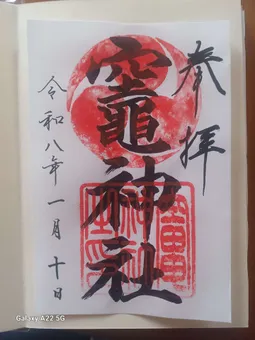 参拝
竈神社
令和八年一月十日
Galaxy A22 5G